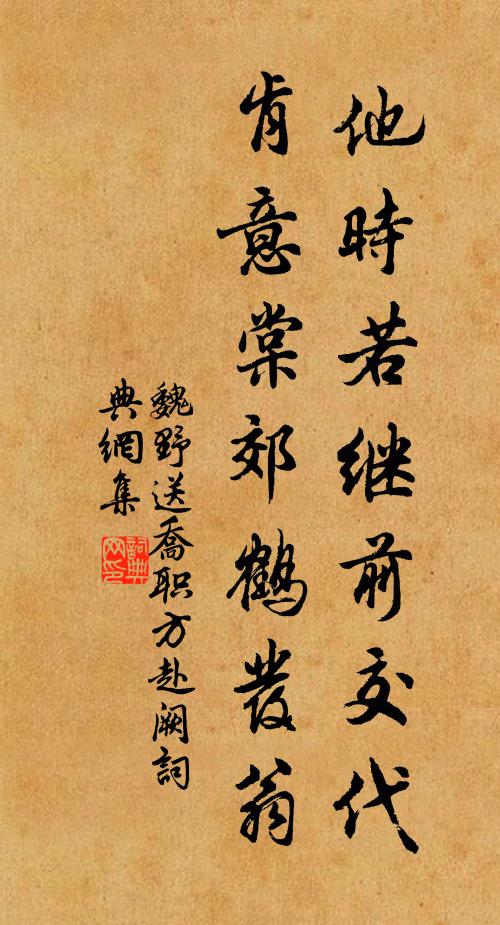 他時若继前交代
肯意棠郊鶴發翁
魏野送喬职方赴阙詞
典網集
詞典
网印